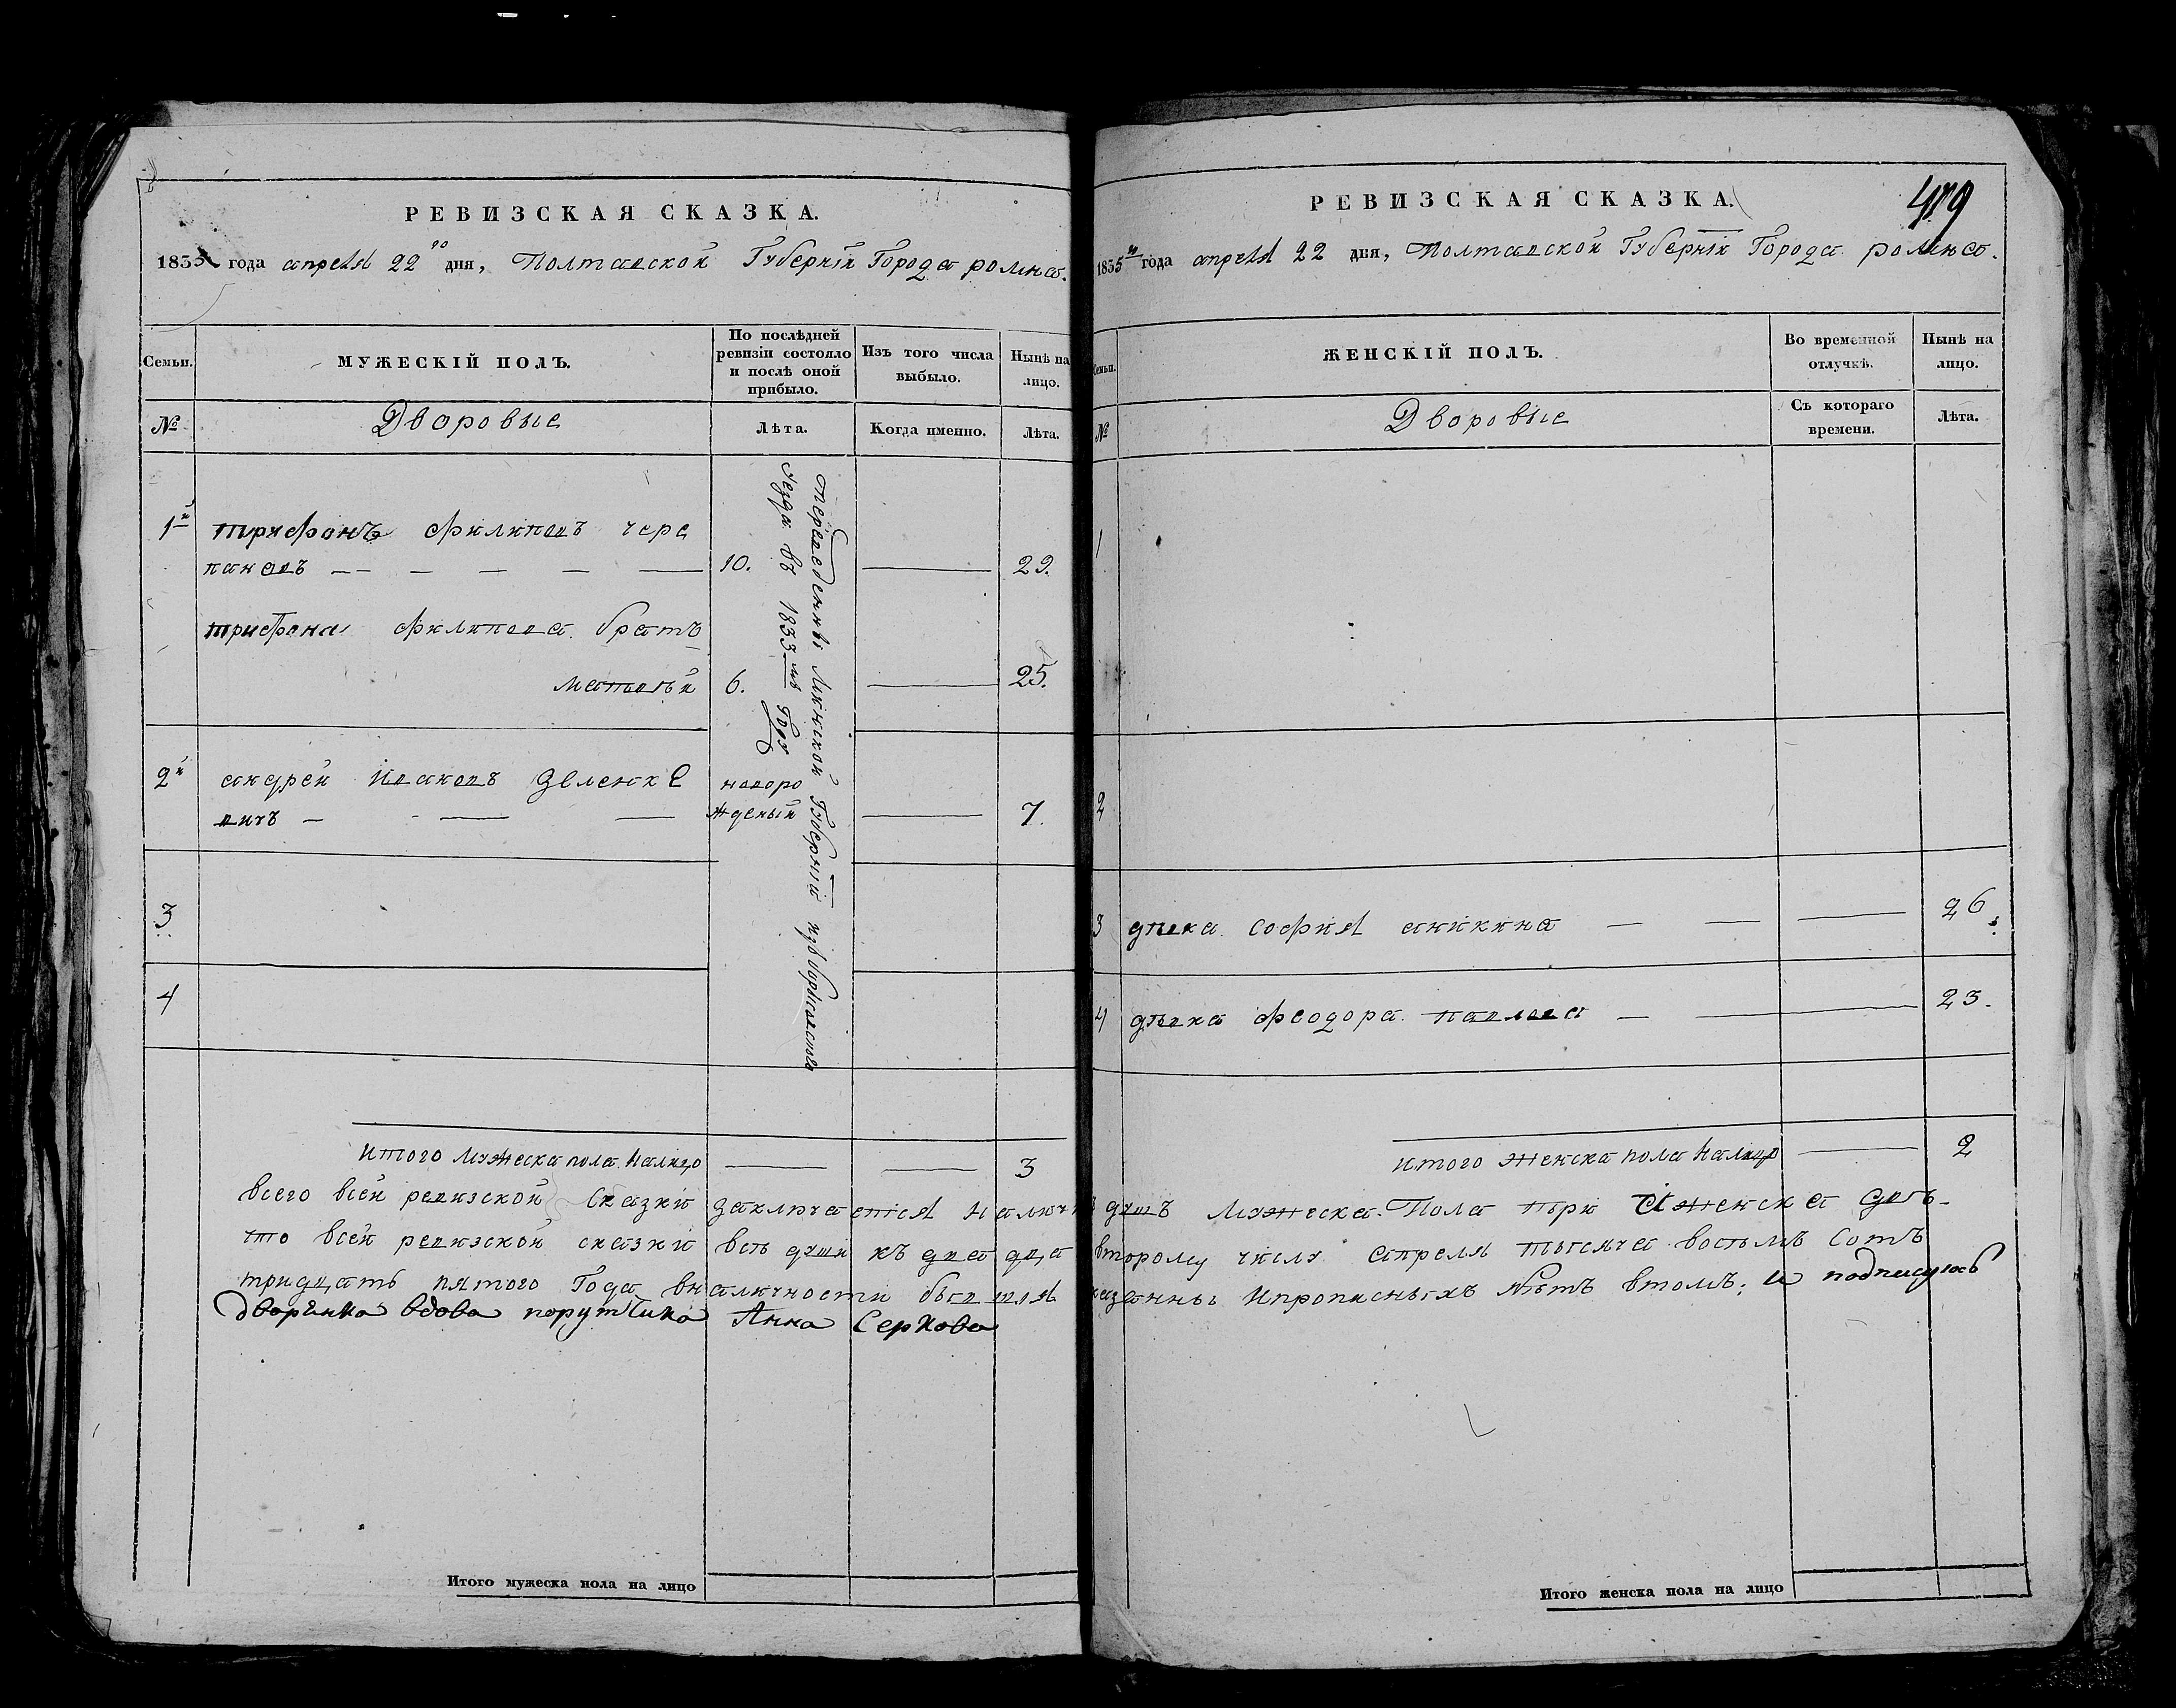 РЕВИЗСКАЯ СКАЗКА.
1835 года апреля 22го дня, Полтавской Губернїи Города ромна.
Семьи.
МУЖЕСКІЙ ПОЛЪ.
По послѣдней ревизіи состояло и послѣ оной прибыло.
Изъ того числа выбыло.
Нынѣ на лицо.
№
Дворовые
Лѣта.
Когда именно.
Лѣта.
1й трифонъ филиповъ чере
пановъ — 10. — 29.
трифона филипова братъ
матвѣй 6. — 25.
2й андрей Ивановъ Зеленке
вичъ — новоро
жденый — 7.
3
4
Переведенны Минской Губернїи
уезда въ 1833мъ Году
Итого мужеска пола налицо — — 3
РЕВИЗСКАЯ СКАЗКА.
479
1835го года апреля 22 дня, Полтавской Губернїи Города ромна.
Семьи.
ЖЕНСКІЙ ПОЛЪ.
Во временной отлучкѣ.
Нынѣ на лицо.
№
Дворовые
Съ котораго времени.
Лѣта.
1
2
3 дѣвка софия аникина — 26.
4 дѣвка феодора павлова — 23.
итого женска пола налицо — 2
всего всей ревизской Сказки заключается налично душъ мужеска Пола три а женска двѣ
что всей ревизской сказки всѣ души къ двадца второму числу апреля тысяча восьмъ сотъ
тридцать пятого Года вналичности были Ипрописныхъ нѣтъ втомъ; и подписуюсь
дворянка вдова порутчика Анна Серкова
Итого мужеска пола на лицо
Итого женска пола на лицо